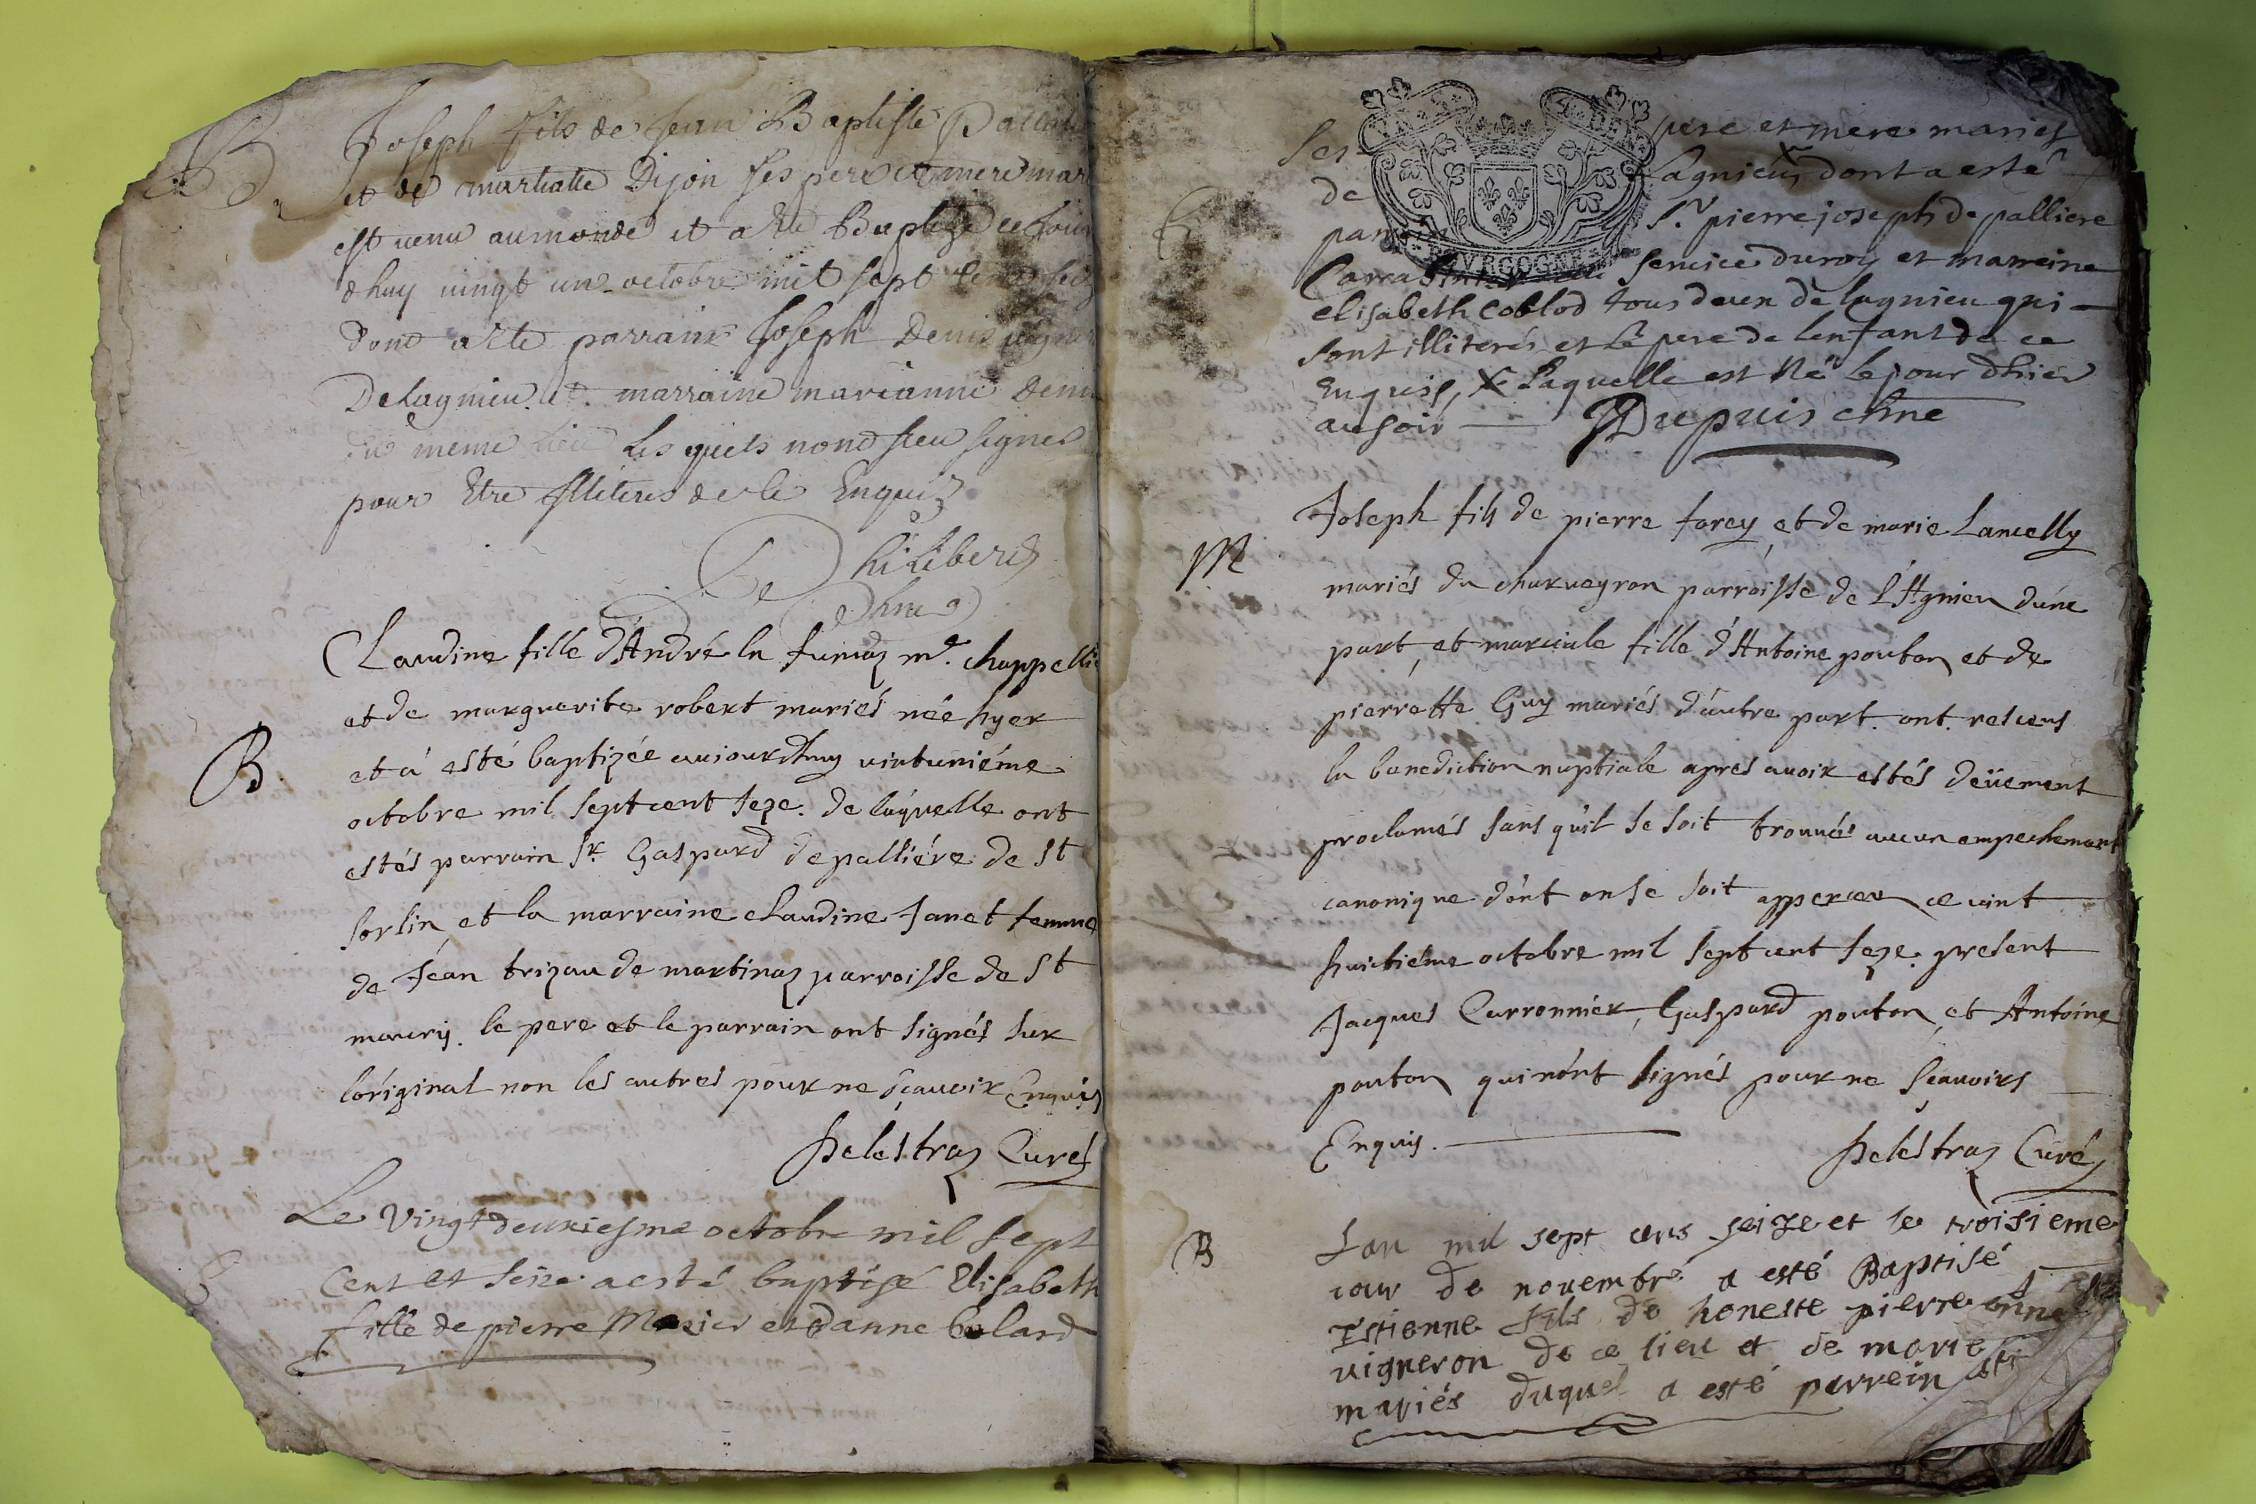 B
Joseph fils de Jean Baptiste
et de martialle Dijon ses pere et mere mar
est venu au monde et a ete Baptizé ce jour
dhuy vingt un octobre mil sept cent seiz
dont a ete parrain Joseph Denis
De Lagnieu et marraine marianne Deni
du meme lieu Les quels nont sceu signer
pour Etre Illiteres de ce Enquis
Philiberd
Chne
Claudine fille d'André la fumaz me. chappellie
et de marguerite robert mariés née hyer
B
et a esté baptizée aujourdhuy vintuniéme
octobre mil sept cent seze. de laquelle ont
estés parrain Sr. Gaspard de palliére de st
sorlin et la marraine claudine Janet femme
de Jean trizau de martinaz parroisse de st
maury. le pere et le parrain ont signés sur
lóriginal non les autres pour ne sçavoir Enquis
Delestraz Curé
Le Vingt deuxiesme octobre mil sept
Cent et seize a esté baptisé Elisabeth
fille de pierre et danne
ses pere et mere mariés
de Lagnieu, dont a esté
parrain Sr. pierre joseph de palliere
service du roy et marreine
elisabeth coblod tous deux de lagnieu qui
sont illiterés et le pere de lenfant de ce
Enquis, X Laquelle est Né le jour dhier
au soir Dupuis chne
Joseph fils de pierre farey et de marie Lancelly
M
mariés du charveyron parroisse de L'Agnieu dúne
part, et marciale fille d'Antoine ponton et de
pierrette Guy mariés d'áutre part. ont resceus
la benediction nuptiale apres avoir estés deüement
proclamés sans qu'il se soit trouvés aucun empechemant
canonique dónt on se soit apperceu ce vint
huictiéme octobre mil sept cent seze. present
Jacques Carronnier, Gaspard ponton, et Antoine
ponton qui nónt signés pour ne scavoirs
Enquis.
Delestraz Curé
B
Lan mil sept cens seize et le troisieme
jour de novembre a esté Baptisé
Estienne fils de honeste pierre
vigneron de ce lieu et de marie
mariés duquel a esté parrein